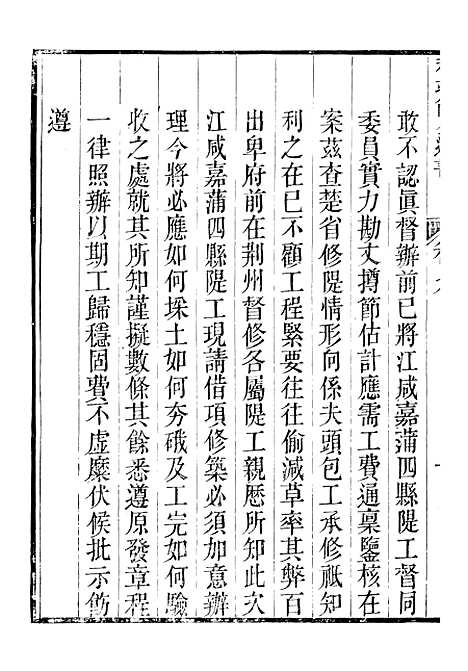 敢不認眞督辦前已將江咸嘉蒲四縣隄工督同
委員實力勘丈撙節估計應需工費通稟鑒核在
案茲查楚省修隄情形向係夫頭包工承修祇知
利之在已不顧工程緊要往往偷減草率其弊百
出卑府前在荆州督修各屬隄工親歷所知此次
江咸嘉蒲四縣隄工現請借項修築必須如意辦
理今將必應如何採土如何夯硪及工完如何驗
收之處就其所知謹擬數條其餘悉遵原發章程
一律照辦以期工歸穩固費不虛糜伏候批示飭
遵